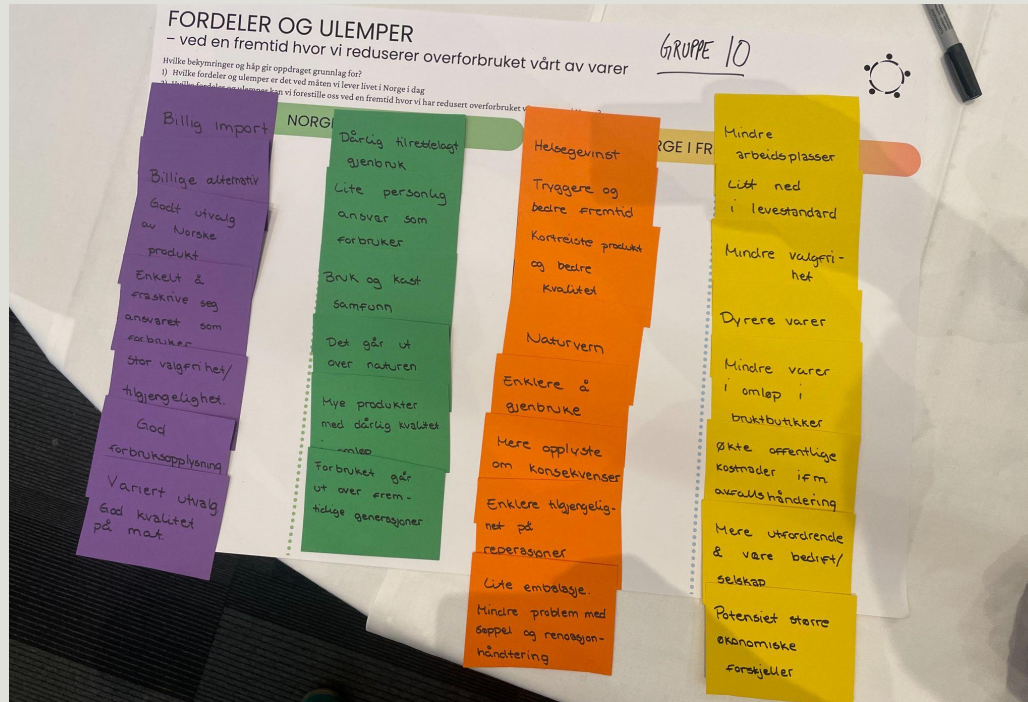 FORDELER OG ULEMPER
– ved en fremtid hvor vi reduserer overforbruket vårt av varer
GRUPPE 10
Hvilke bekymringer og håp gir oppdraget grunnlag for?
1) Hvilke fordeler og ulemper er det ved måten vi lever livet i Norge i dag
kan vi forestille oss ved en fremtid hvor vi har redusert overforbruket
NORGE
RGE I FR
Billig import
Billige alternativ
Godt utvalg
av Norske
produkt
Enkelt å
fraskrive seg
ansvaret som
forbruker
Stor valgfrihet/
tilgjengelighet.
God
forbruksopplysning
Variert utvalg
God kvalitet
på mat.
Dårlig tilrettelagt
gjenbruk
Lite personlig
ansvar som
forbruker
Bruk og kast
samfunn
Det går ut
over naturen
Mye produkter
med dårlig kvalitet
i omløp
Forbruket går
ut over frem-
tidige generasjoner
Helsegevinst
Tryggere og
bedre fremtid
Kortreiste produkt
og bedre
kvalitet
Naturvern
Enklere å
gjenbruke
Mere opplyste
om konsekvenser
Enklere tilgjengelig-
het på
reperasjoner
Lite embalasje.
Mindre problem med
søppel og renovasjon-
håndtering
Mindre
arbeidsplasser
Litt ned
i levestandard
Mindre valgfri-
het
Dyrere varer
Mindre varer
i omløp i
bruktbutikker
Økte offentlige
kostnader ifm
avfallshåndtering
Mere utfordrende
å være bedrift/
selskap
Potensiet større
økonomiske
forskjeller